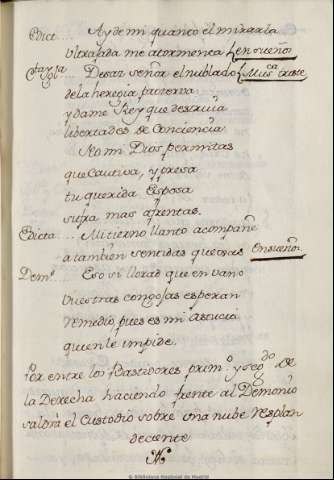 Edict.... Ay de mi quanto el mirarla
Ultrajada me atormenta (en sueños
Desaz señor el nublado (Musca triste
de la heregia proterva
y dame Rey que destruia
libertades de Conciencia
No mi Dios permitas
que Cautiva, y presa
tu querida Esposa
sufra mas afrentas.
Edicta ... Mi tierno llanto acompañe
a tambien sentidas quexas En sueños
Demo ... Eso si llorad que en vano
vuestras congojas esperan
remedio pues es mi astucia
quien le impide.
Por entre los Bastidores primo. y segdo. de
la Derecha haciendo frente al Demonio
saldrá el Custodio sobre una nube resplan
decente
© Biblioteca Nacional de Madrid